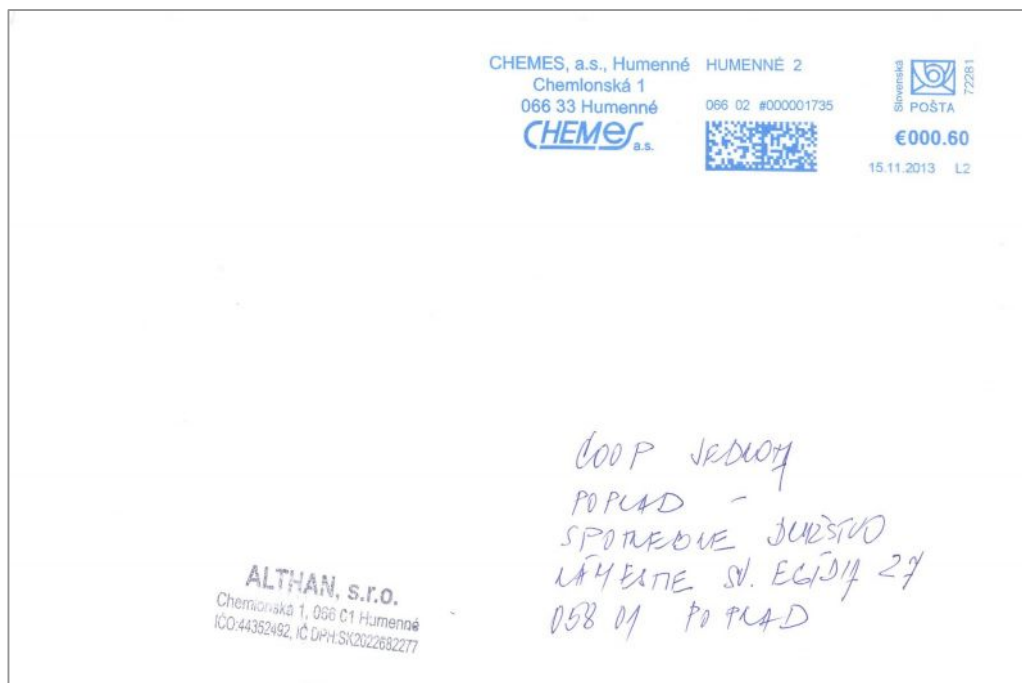 CHEMES, a.s., Humenné
Chemlonská 1
066 33 Humenné
CHEMES a.s.
HUMENNÉ 2
066 02 #000001735
Slovenská
POŠTA
72281
€000.60
15.11.2013 L2
COOP JEDNOTA
POPRAD -
SPOTREBNE DRUŽSTVO
NÁMESTIE SV. EGÍDIA 27
058 01 POPRAD
ALTHAN, s.r.o.
Chemlonská 1, 066 01 Humenné
IČO:44352492, IČ DPH:SK2022682277